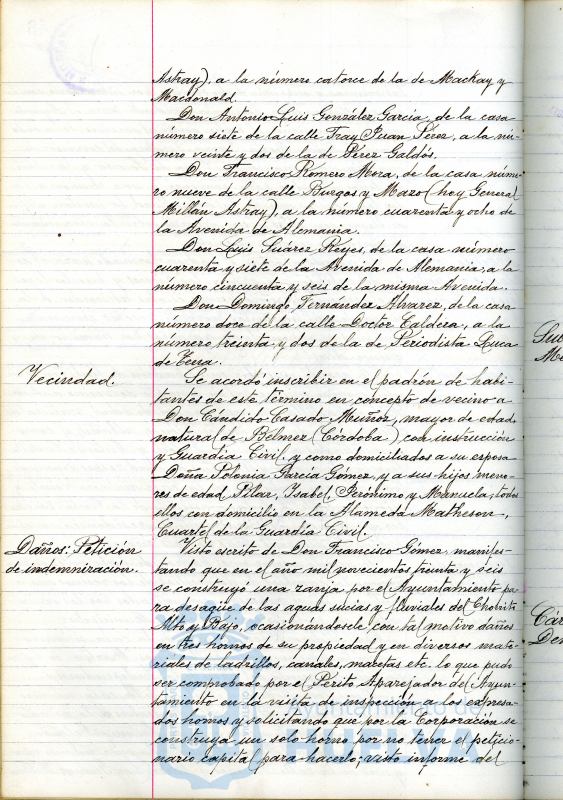 Astray), a la número catorce de la de Mackay y
Macdonald.
Don Antonio Luis González García, de la casa
número siete de la calle Fray Juan Pérez, a la nú-
mero veinte y dos de la de Pérez Galdós.
Don Francisco Romero Mora, de la casa núme-
ro nueve de la calle Burgos y Mazo (hoy General
Millán Astray), a la número cuarenta y ocho de
la Avenida de Alemania.
Don Luis Suárez Reyes, de la casa número
cuarenta y siete de la Avenida de Alemania, a la
número cincuenta y seis de la misma Avenida.
Don Domingo Fernández Alvarez, de la casa
número doce de la calle Doctor Caldera, a la
número treinta y dos de la de Periodista Luca
de Tena.
Vecindad.
Se acordó inscribir en el padrón de habi-
tantes de este término en concepto de vecino a
Don Cándido Casado Muñoz, mayor de edad
natural de Belmez (Córdoba) con instrucción
y Guardia Civil, y como domiciliados a su esposa
Doña Polonia García Gómez, y a sus hijos meno-
res de edad Pilar, Isabel, Jerónimo y Manuela, todos
ellos con domicilio en la Alameda Matheson,
Cuartel de la Guardia Civil.
Daños: Petición
de indemnización.
Visto escrito de Don Francisco Gómez, manifes-
tando que en el año mil novecientos treinta y seis
se construyó una zanja por el Ayuntamiento pa-
ra desagüe de las aguas sucias y fluviales del Chorrito
Alto y Bajo, ocasionándosele con tal motivo daños
en tres hornos de su propiedad y en diversos mate-
riales de ladrillos, canales, macetas etc. lo que pudo
ser comprobado por el Perito Aparejador del Ayun-
tamiento en la visita de inspección a los expresa-
dos hornos y solicitando que por la Corporación se
construya un solo horno por no tener el peticio-
nario capital para hacerlo; visto informe del